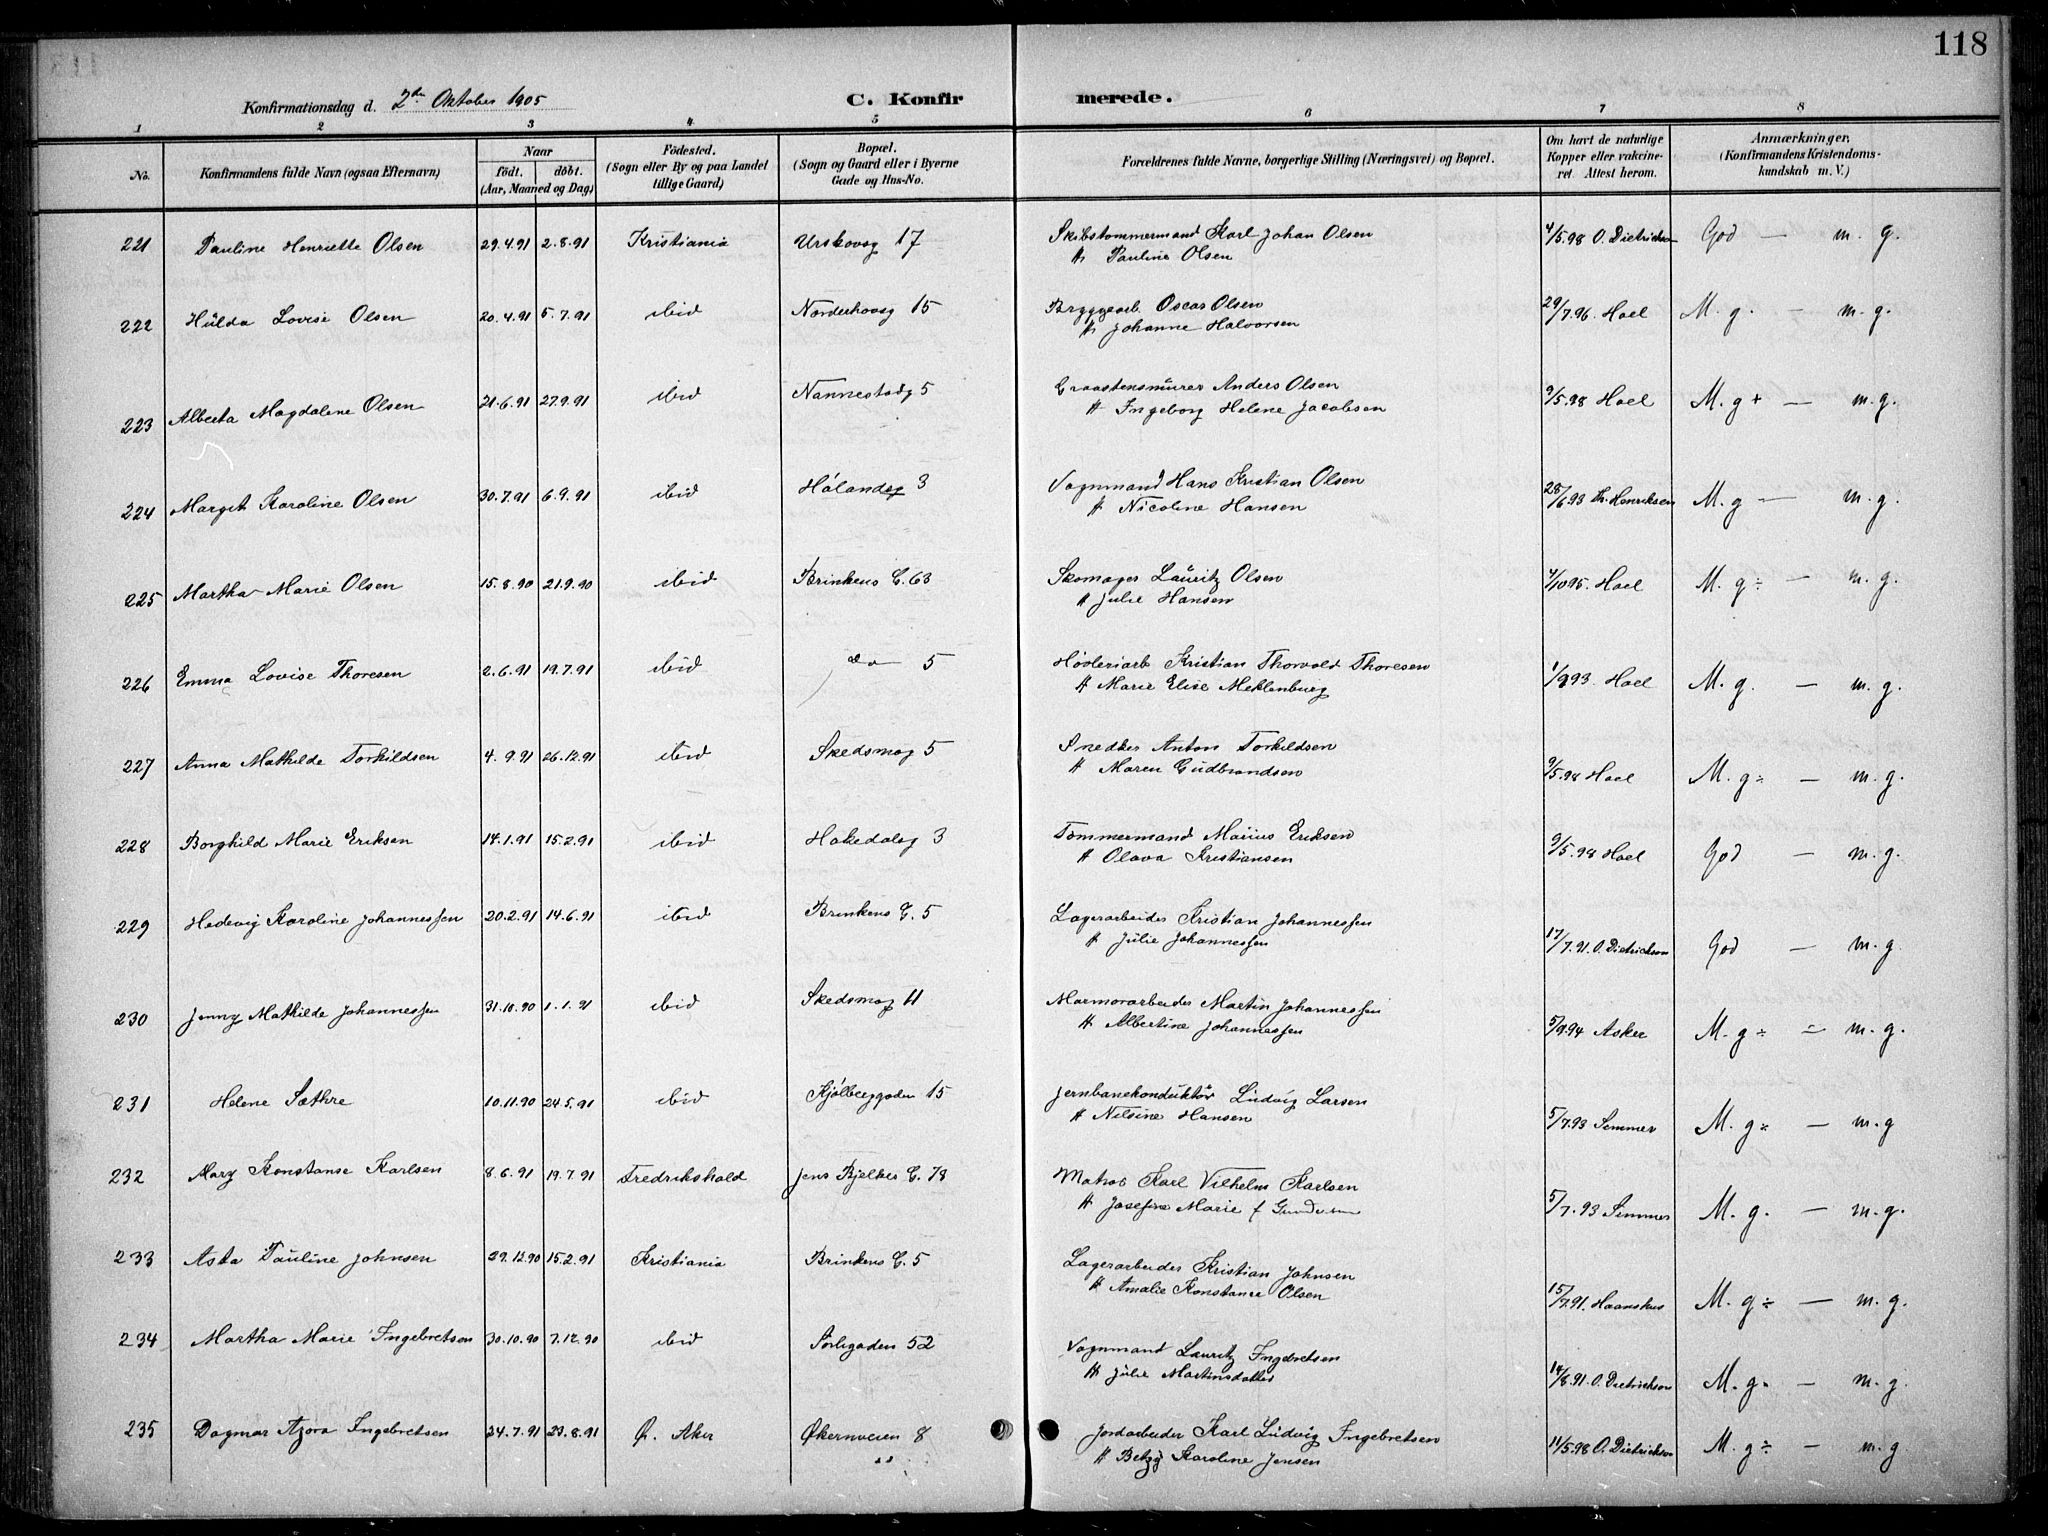 118
Konfirmationsdag d. 2den Oktober 1905 C. Konfirmerede.
1 2 3 4 5 6 7 8
No. Konfirmandens fulde Navn (ogsaa Efternavn) Naar født. døbt. (Aar, Maaned og Dag) Fødested. (Sogn eller By og paa Landet tillige Gaard) Bopæl. (Sogn og Gaard eller i Byerne Gade og Hus-No. Forældrenes fulde Navne, borgerlige Stilling (Næringsvei) og Bopæl. Om havt de naturlige Kopper eller vakcineret. Attest herom. Anmærkninger, (Konfirmandens Kristendomskundskab m. V.)
221 Pauline Henriette Olsen 29.4.91 2.8.91 Kristiania Urskovsg 17 Skibstømmermand Karl Johan Olsen 4/5.98 O. Dietrichson God — m. g.
H. Pauline Olsen
222 Hulda Lovise Olsen 20.4.91 5.7.91 ibid Norderhovsg 15 Bryggearb. Oscar Olsen 29/7.96 Hoel M. g. — m. g.
H. Johanne Halvorsen
223 Alberta Magdalene Olsen 21.6.91 27.9.91 ibid Nannestadg 5 Graastensmurer Anders Olsen 9/5.98 Hoel M. g + — m. g.
H. Ingeborg Helene Jacobsen
224 Margit Karoline Olsen 30.7.91 6.9.91 ibid Hølandsg 3 Vognmand Hans Kristian Olsen 28/6.93 Th. Henriksen M. g — m. g.
H. Nicoline Hansen
225 Martha Marie Olsen 15.8.90 21.9.90 ibid Brinkens G. 63 Skomager Lauritz Olsen 4/10 95. Hoel M. g ÷ — m. g.
H. Julie Hansen
226 Emma Lovise Thoresen 2.6.91 19.7.91 ibid do 5 Høvleriarb Kristian Thorvald Thoresen 1/993. Hoel M. g. — m. g.
H. Marie Elise Meklenburg
227 Anna Mathilde Torkildsen 4.9.91 26.12.91 ibid Skedsmog 5 Snedker Anton Torkildsen 9/5.98 Hoel M. g ÷ — m. g.
H. Maren Gudbrandsen
228 Borghild Marie Eriksen 14.1.91 15.2.91 ibid Hakedalsg 3 Tømmermand Marius Eriksen 9/5.98 Hoel God — m. g.
H. Olava Kristiansen
229 Hedevig Karoline Johannessen 20.2.91 14.6.91 ibid Brinkens G. 5 Lagerarbeider Kristian Johannessen 17/7.91 O. Dietrichson God — m. g.
H. Julie Johannessen
230 Jenny Mathilde Johannessen 31.10.90 1.1.91 ibid Skedsmog 11 Marmorarbeider Martin Johannessen 5/9.94 Asker M. g ÷ — m. g.
H. Albertine Johannessen
231 Helene Sæthre 10.11.90 24.5.91 ibid Kjølberggaden 15 Jernbanekonduktør Ludvig Larsen 5/7.93 Semmer M. g ÷ — m. g
H. Nilsine Hansen
232 Mary Konstanse Karlsen 8.6.91 19.7.91 Fredrikshald Jens Bjelkes G. 78 Matros Karl Vilhelm Karlsen 5/7.93 Semmer M. g. — m. g.
H. Josefine Marie f.
233 Asta Pauline Johnsen 29.12.90 15.2.91 Kristiania Brinkens G. 5 Lagerarbeider Kristian Johnsen 15/7.91. Haanshus M. g ÷ — m. g.
H. Amalie Konstance Olsen
234 Martha Marie Ingebretsen 30.10.90 7.12.90 ibid Sørligaden 52 Vognmand Lauritz Ingebretsen 14/8.91. O. Dietrichson M. g. — m. g.
H. Julie Martinsdatter
235 Dagmar Azora Ingebretsen 24.7.91 23.8.91 Ø. Aker Økernveien 8 Jordarbeider Karl Ludvig Ingebretsen 11/5.98 O. Dietrichson M. g ÷ — m. g
H. Betzy Karoline Jensen